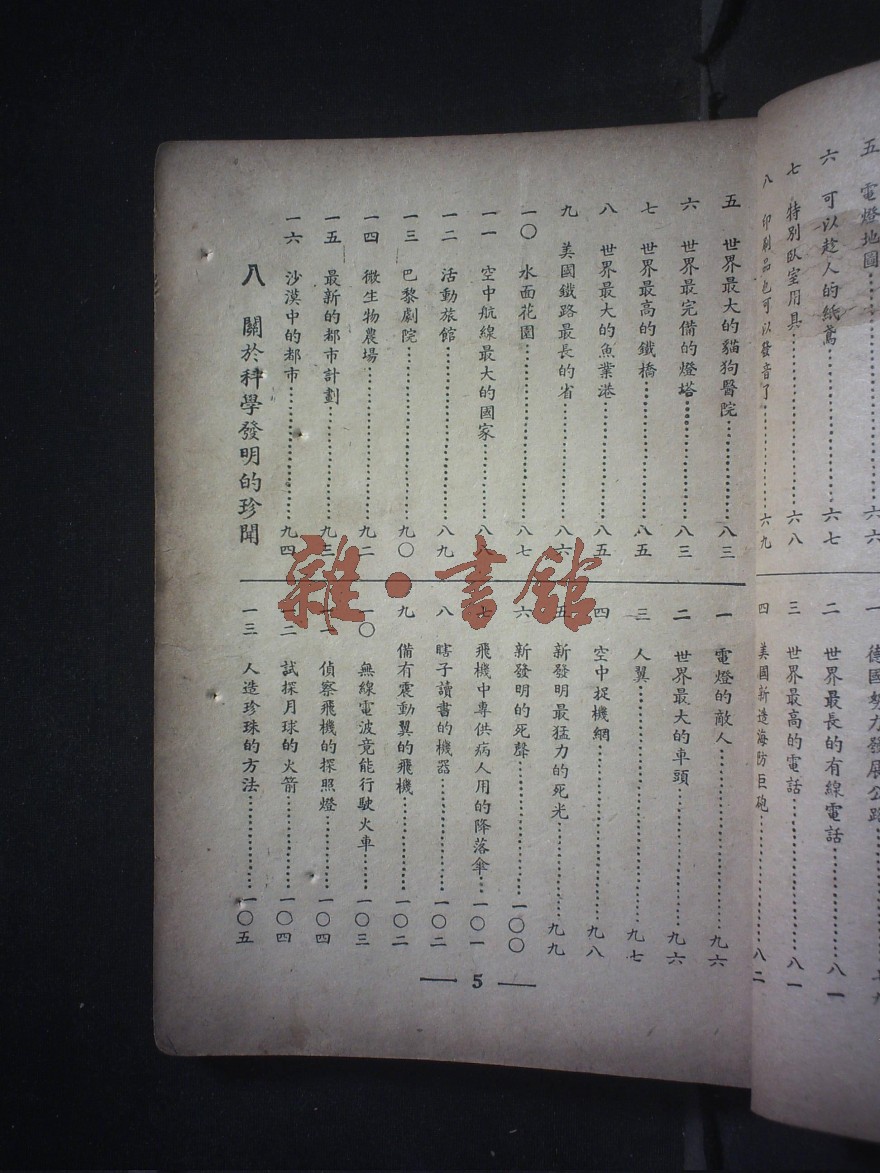 五　電燈地圖……六六
六　可以趁人的紙鳶……六七
七　特別臥室用具……六八
八　印刷品也可以發音了……六九
一　德國努力發展公路
二　世界最長的有線電話……八一
三　世界最高的電話……八一
四　美國新造海防巨砲……八二
五　世界最大的貓狗醫院……八三
六　世界最完備的燈塔……八三
七　世界最高的鐵橋……八五
八　世界最大的魚業港……八五
九　美國鐵路最長的省……八六
一〇　水面花園……八七
一一　空中航線最大的國家……八八
一二　活動旅館……八九
一三　巴黎劇院……九〇
一四　微生物農場……九二
一五　最新的都市計劃……九三
一六　沙漠中的都市……九四
八　關於科學發明的珍聞
一　電燈的敵人……九六
二　世界最大的車頭……九六
三　人翼……九七
四　空中捉機網……九八
五　新發明最猛力的死光……九九
六　新發明的死聲……一〇〇
七　飛機中專供病人用的降落傘……一〇一
八　瞎子讀書的機器……一〇二
九　備有震動翼的飛機……一〇二
一〇　無線電波竟能行駛火車……一〇三
一一　偵察飛機的探照燈……一〇四
一二　試探月球的火箭……一〇四
一三　人造珍珠的方法……一〇五
5
雜·書館